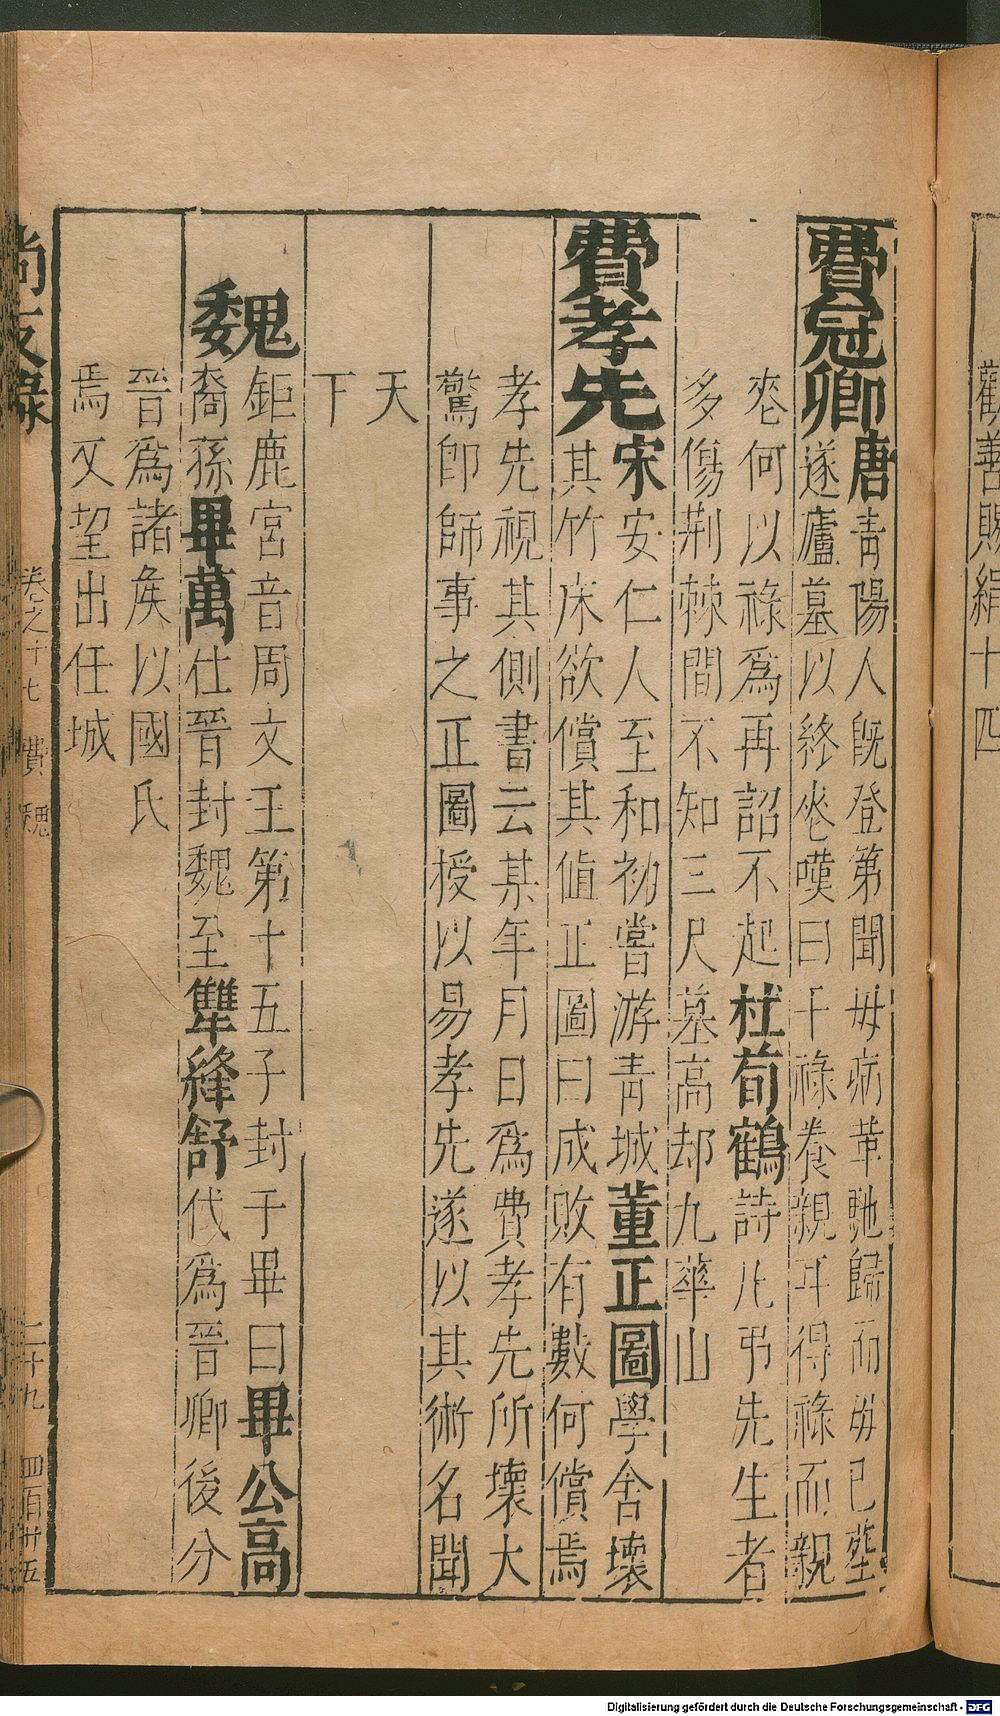 觀善賜絹十四
費冠卿唐青陽人旣登第聞母病革馳歸而母已塟
遂廬墓以終㤙嘆曰干祿養親耳得祿而親
㤙何以祿爲再詔不起杜荀鶴詩凡弔先生者
多傷荆棘間不知三尺墓高却九華山
費孝先宋安仁人至和初嘗游青城董正圖學舍壞
其竹床欲償其值正圖曰成敗有數何償焉
孝先視其側書云某年月日爲費孝先所壞大
驚卽師事之正圖授以易孝先遂以其術名聞
天
下
魏鉅鹿宮音周文王第十五子封于畢曰畢公高
裔孫畢萬仕晉封魏至犨絳舒代爲晉卿後分
晉爲諸矦以國氏
焉又望出任城
尚友錄 卷之十七 費 魏 二十九 四百卅五
Digitalisierung gefördert durch die Deutsche Forschungsgemeinschaft - DFG